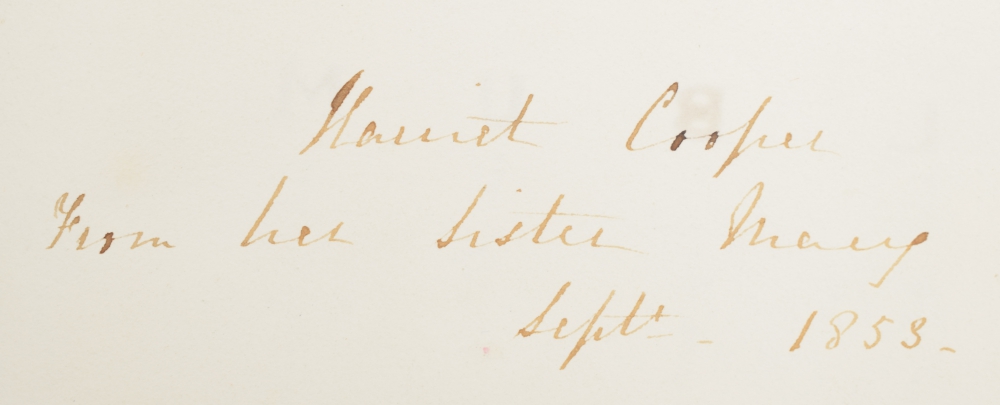 Harriet Cooper
From her sister Mary
Septr - 1853 -